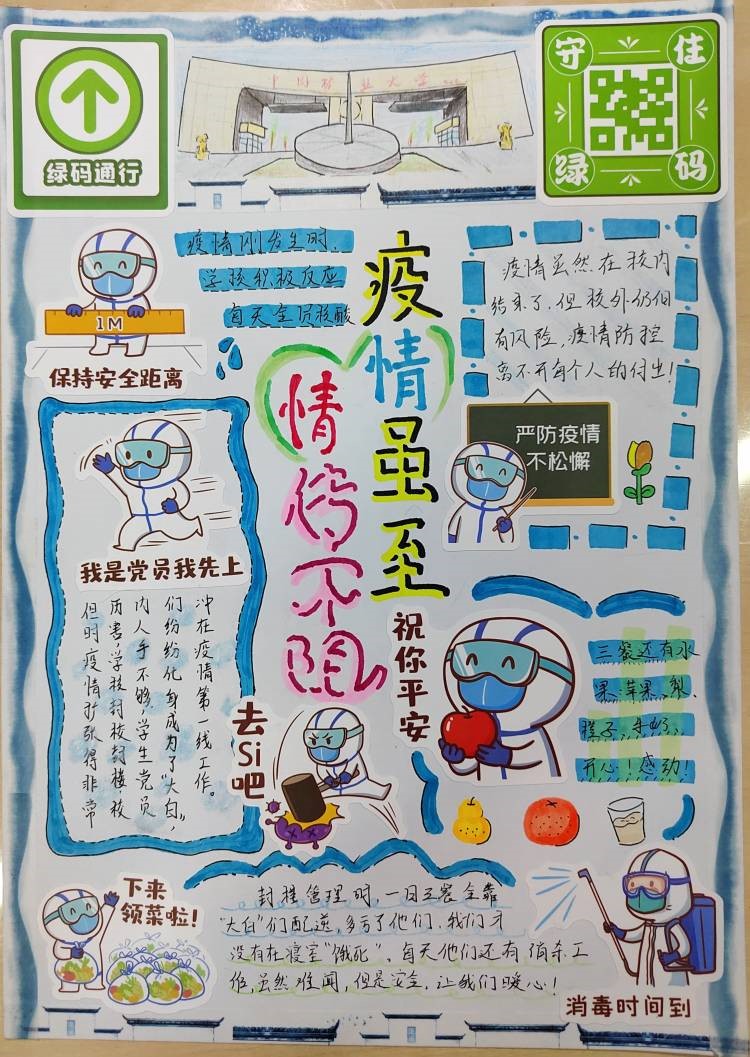 绿码通行
中国矿业大学
守住
绿码
疫情刚发生时，
学校积极反应
每天全员核酸
疫情虽至
情传不阻
疫情虽然在校内
结束了，但校外仍旧
有风险，疫情防控
离不开每个人的付出！
1M
保持安全距离
严防疫情
不松懈
我是党员我先上
但时疫情扩张得非常
厉害，学校封校封楼，校
内人手不够，学生党员
们纷纷化身成为了“大白”，
冲在疫情第一线工作。
去Si吧
祝你平安
三餐还有水
果：苹果、梨、
橙子、牛奶、
开心！感动！
下来
领菜啦！
封楼管理时，一日三餐全靠
“大白”们配送，多亏了他们，我们才
没有在寝室“饿死”，每天他们还有消杀工
作，虽然难闻，但是安全，让我们暖心！
消毒时间到